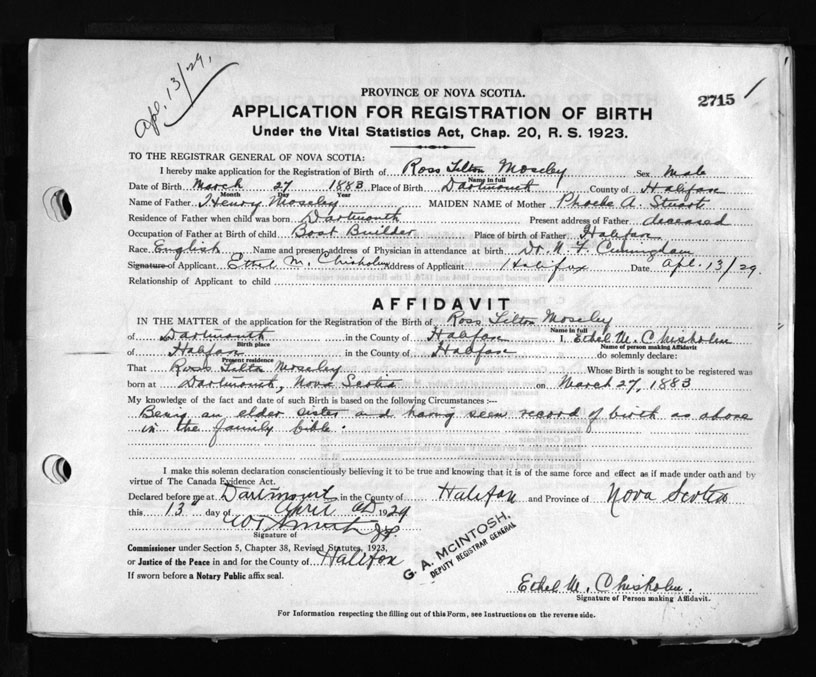 Apl. 13/29,
2715 1
PROVINCE OF NOVA SCOTIA.
APPLICATION FOR REGISTRATION OF BIRTH
Under the Vital Statistics Act, Chap. 20, R. S. 1923.
TO THE REGISTRAR GENERAL OF NOVA SCOTIA:
I hereby make application for the Registration of Birth of Ross Tilton Moseley Sex Male
Name in full
Date of Birth March 27 1883 Place of Birth Dartmouth County of Halifax
Month Day Year
Name of Father Henry Moseley MAIDEN NAME of Mother Phoebe A. Stuart
Residence of Father when child was born Dartmouth Present address of Father deceased
Occupation of Father at Birth of child Boat Builder Place of birth of Father Halifax
Race English Name and present address of Physician in attendance at birth Dr. Cunningham
Signature of Applicant Ethel M. Chisholm Address of Applicant Halifax Date Apl. 13/29.
Relationship of Applicant to child
AFFIDAVIT
IN THE MATTER of the application for the Registration of the Birth of Ross Tilton Moseley
Name in full
of Dartmouth in the County of Halifax I, Ethel M. Chisholm
Birth place Name of person making Affidavit
of Halifax in the County of Halifax do solemnly declare:
Present residence
That Ross Tilton Moseley Whose Birth is sought to be registered was
born at Dartmouth, Nova Scotia on March 27, 1883
My knowledge of the fact and date of such Birth is based on the following Circumstances :—
Being an elder sister and having seen record of birth as above
in the family bible.
I make this solemn declaration conscientiously believing it to be true and knowing that it is of the same force and effect as if made under oath and by
virtue of The Canada Evidence Act.
Declared before me at Dartmouth in the County of Halifax and Province of Nova Scotia
this 13th day of April AD 1929
J.P.
Signature of
Commissioner under Section 5, Chapter 38, Revised Statutes, 1923,
or Justice of the Peace in and for the County of Halifax
If sworn before a Notary Public affix seal.
G. A. McINTOSH,
DEPUTY REGISTRAR GENERAL
Ethel M. Chisholm.
Signature of Person making Affidavit.
For Information respecting the filling out of this Form, see Instructions on the reverse side.